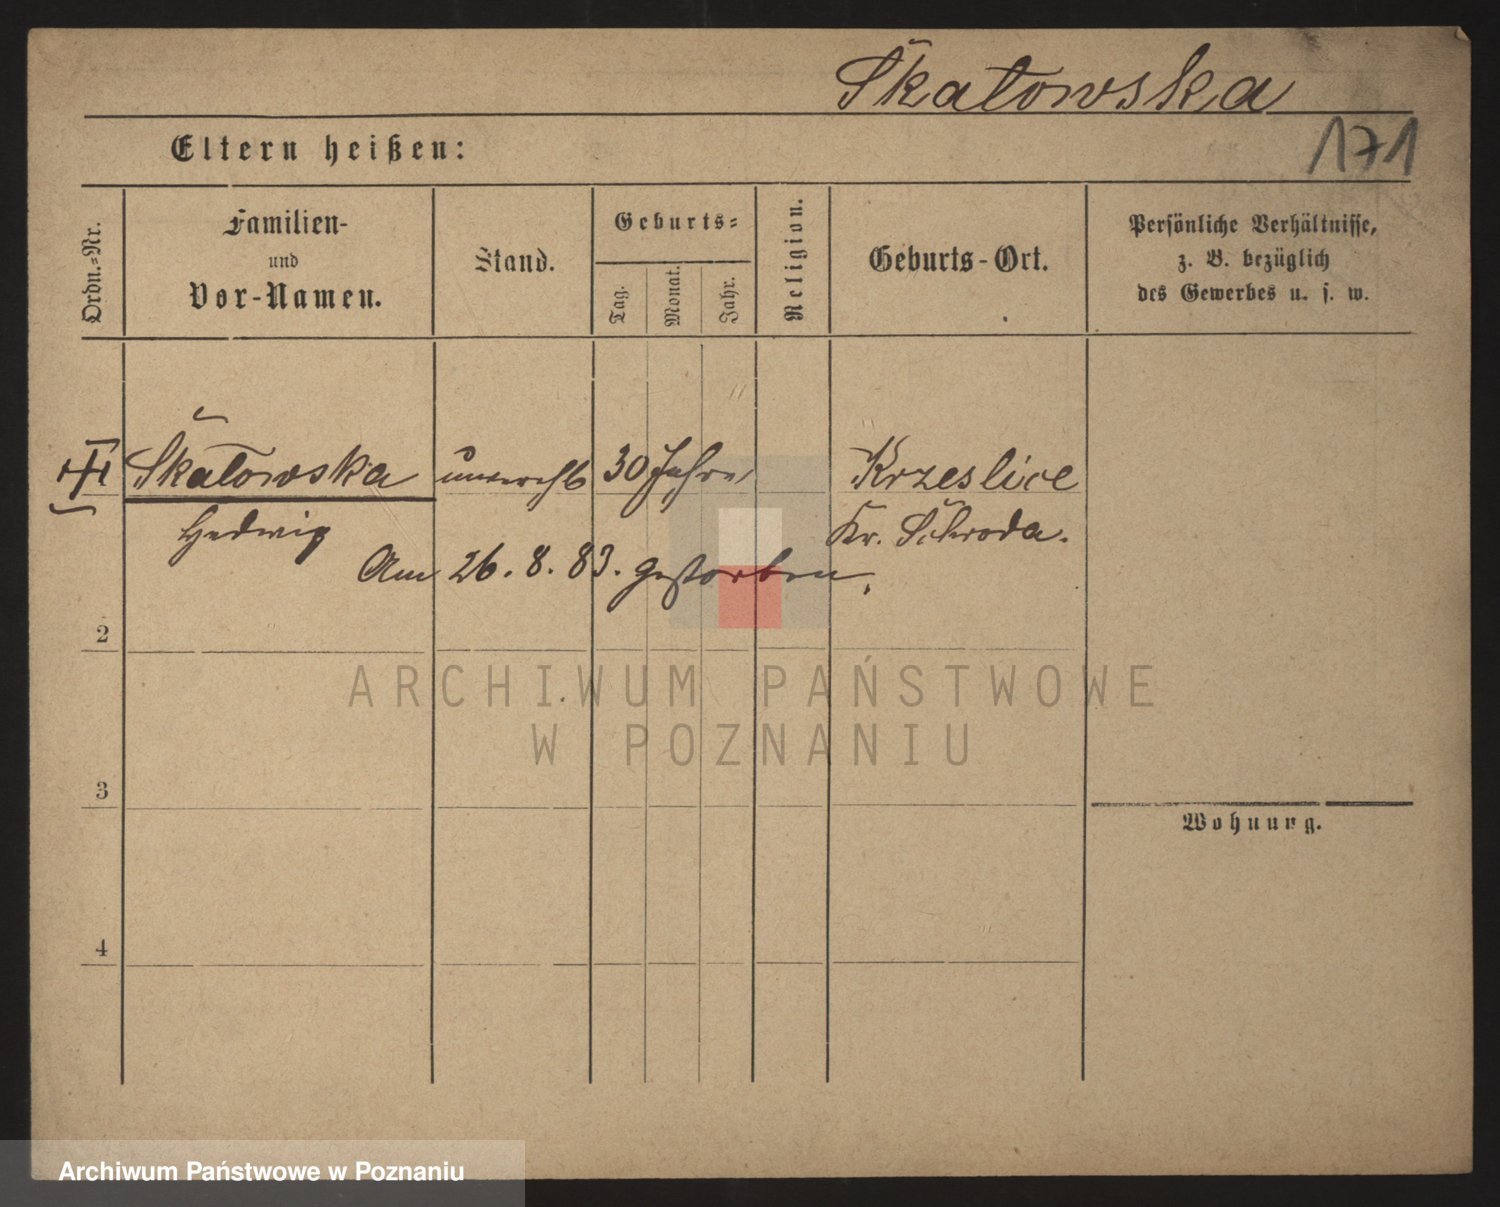 Skatowska
171
Eltern heißen:
Ordn.-Nr.
Familien-
und
Vor-Namen.
Stand.
Geburts-
Tag.
Monat.
Jahr.
Religion.
Geburts-Ort.
Persönliche Verhältnisse,
z. B. bezüglich
des Gewerbes u. s. w.
Skatowska unverehl 30 Jahre, Krzeslice
Hedwig Kr. Schroda.
Am 26. 8. 83. gestorben.
2
ARCHIWUM PAŃSTWOWE
W POZNANIU
3
Wohnung.
4
Archiwum Państwowe w Poznaniu